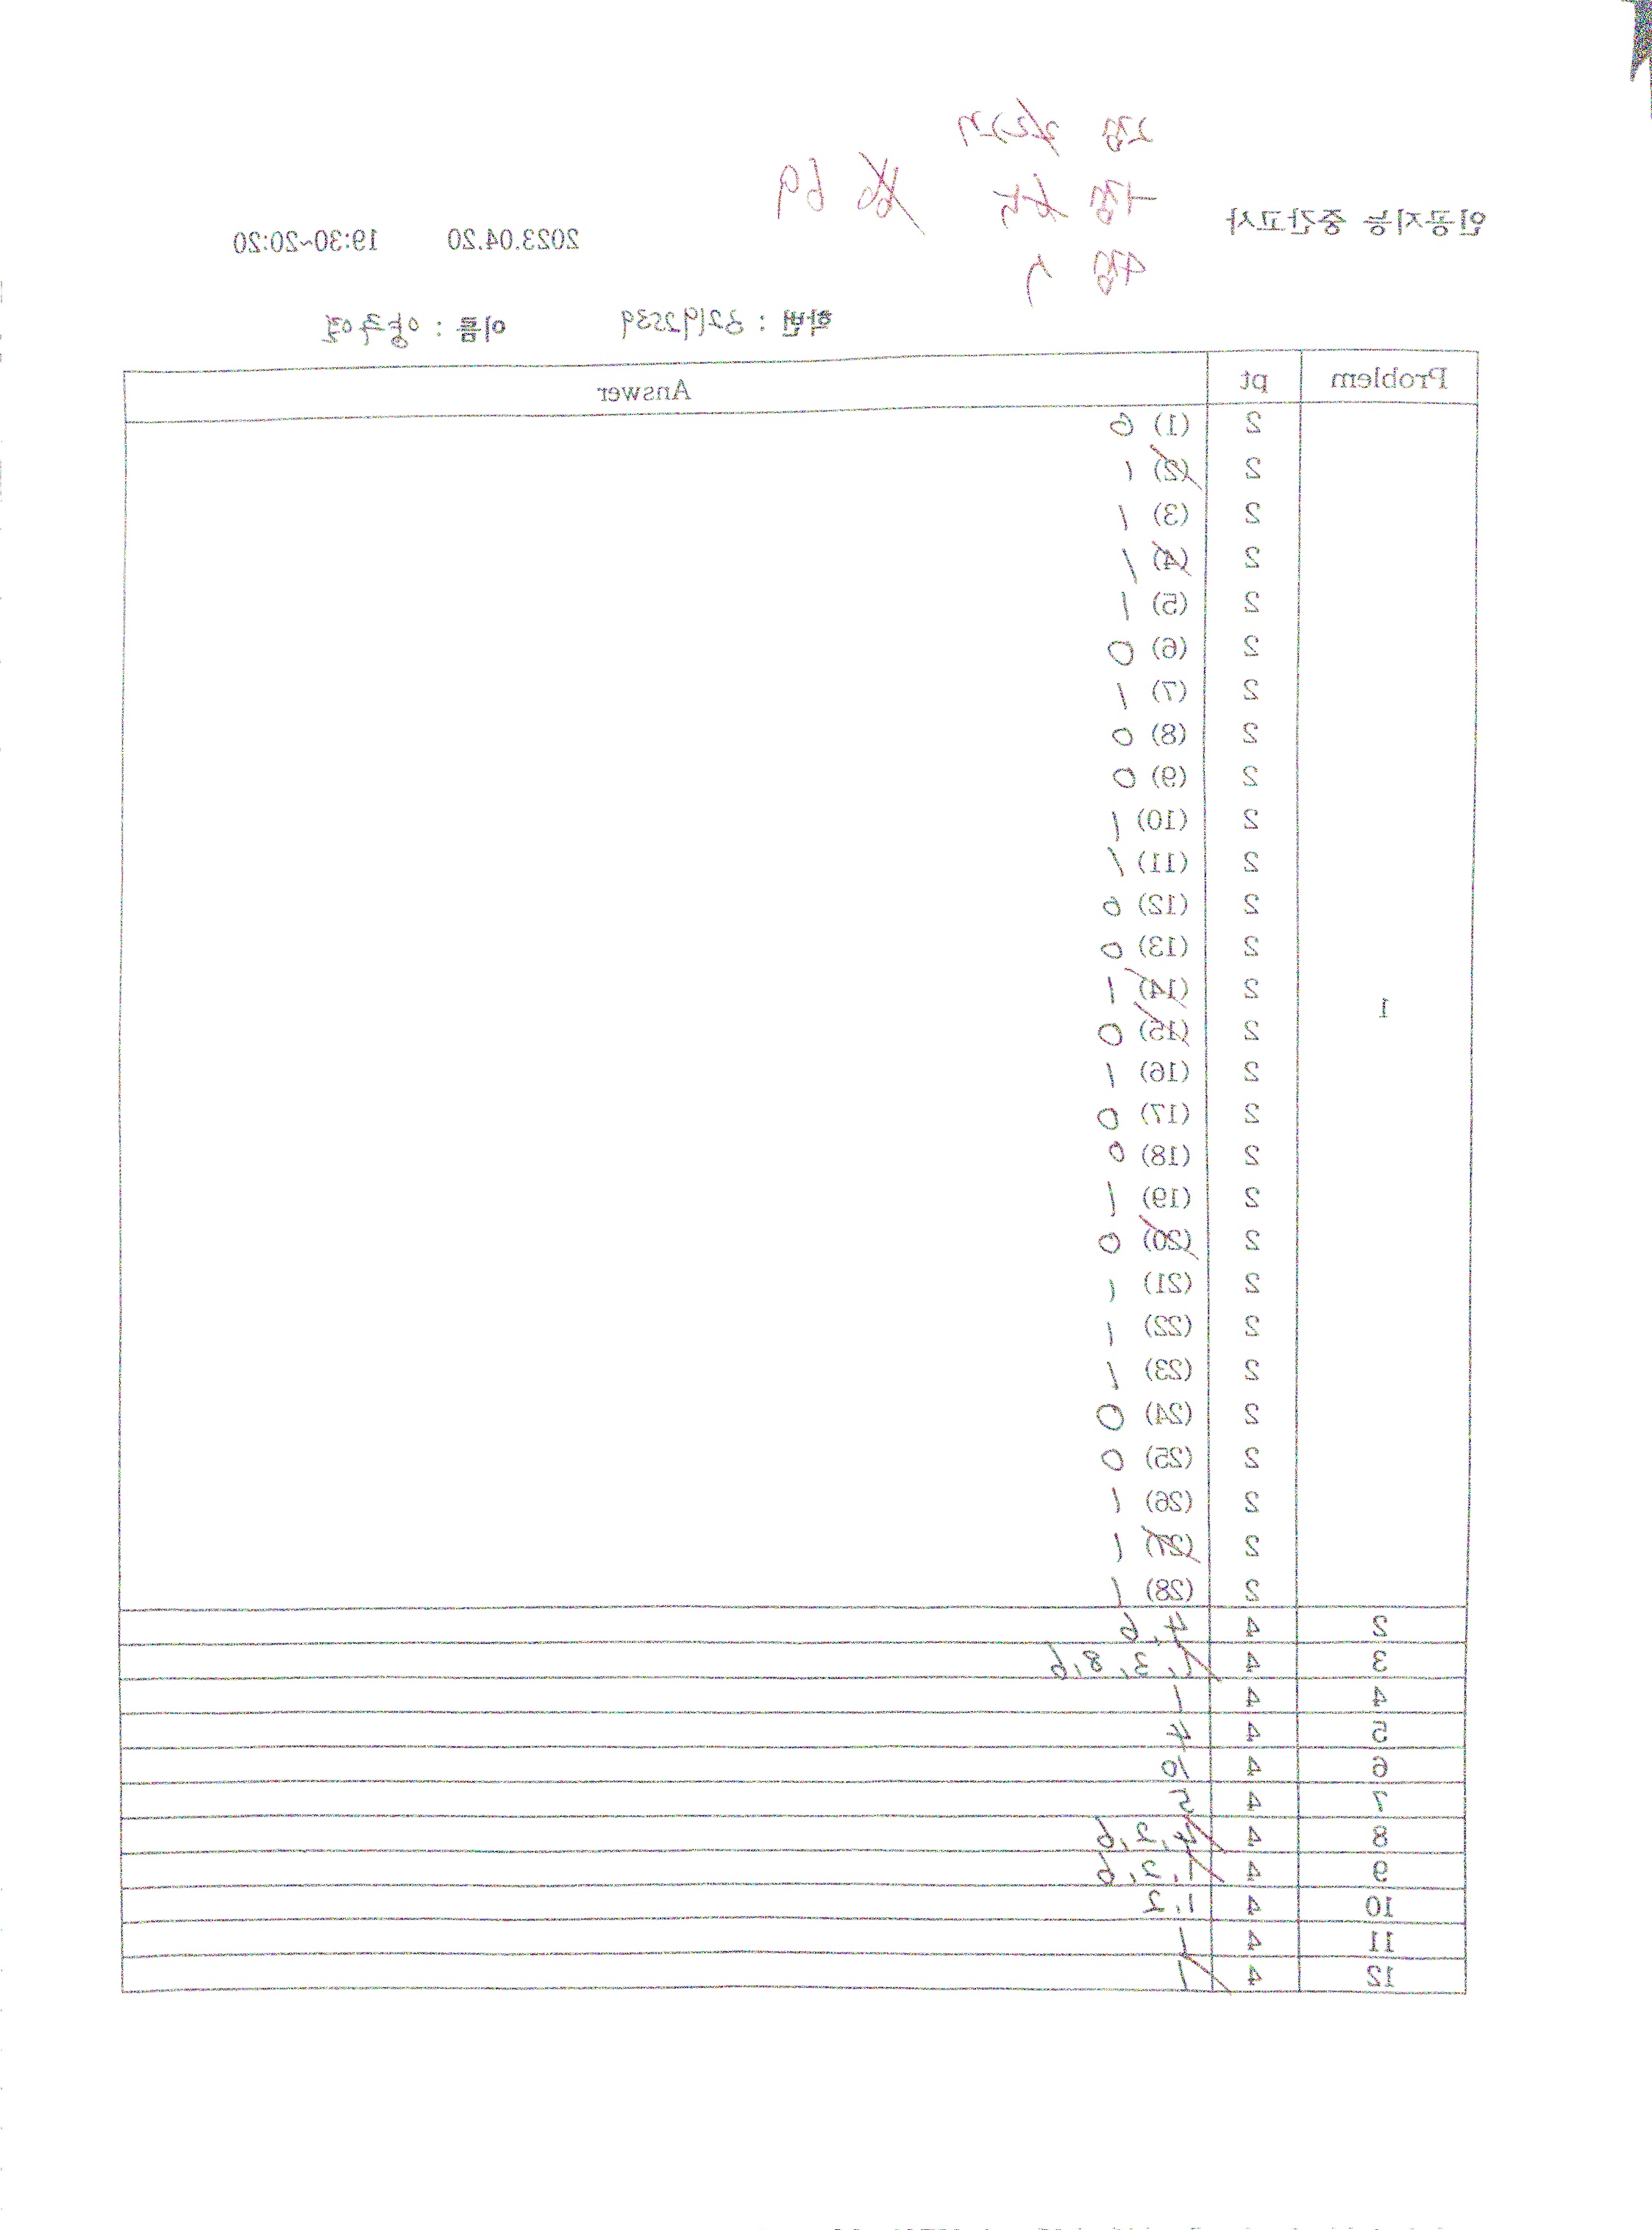 2점 22개
4점 5
69
4점 7
인공지능 중간고사 2023.04.20 19:30~20:20
학번 : 32192539 이름 : 양구연
Problem pt Answer
1
2 (1) 0
2 (2) 1
2 (3) 1
2 (4) 1
2 (5) 1
2 (6) 0
2 (7) 1
2 (8) 0
2 (9) 0
2 (10) 1
2 (11) 1
2 (12) 0
2 (13) 0
2 (14) 1
2 (15) 0
2 (16) 1
2 (17) 0
2 (18) 0
2 (19) 1
2 (20) 0
2 (21) 1
2 (22) 1
2 (23) 1
2 (24) 0
2 (25) 0
2 (26) 1
2 (27) 1
2 (28) 1
2 4 4, 6
3 4 1, 3, 8, 6
4 4 1
5 4 4
6 4 10
7 4 5
8 4 4, 2, 6
9 4 1, 2, 6
10 4 1, 2
11 4 1
12 4 1